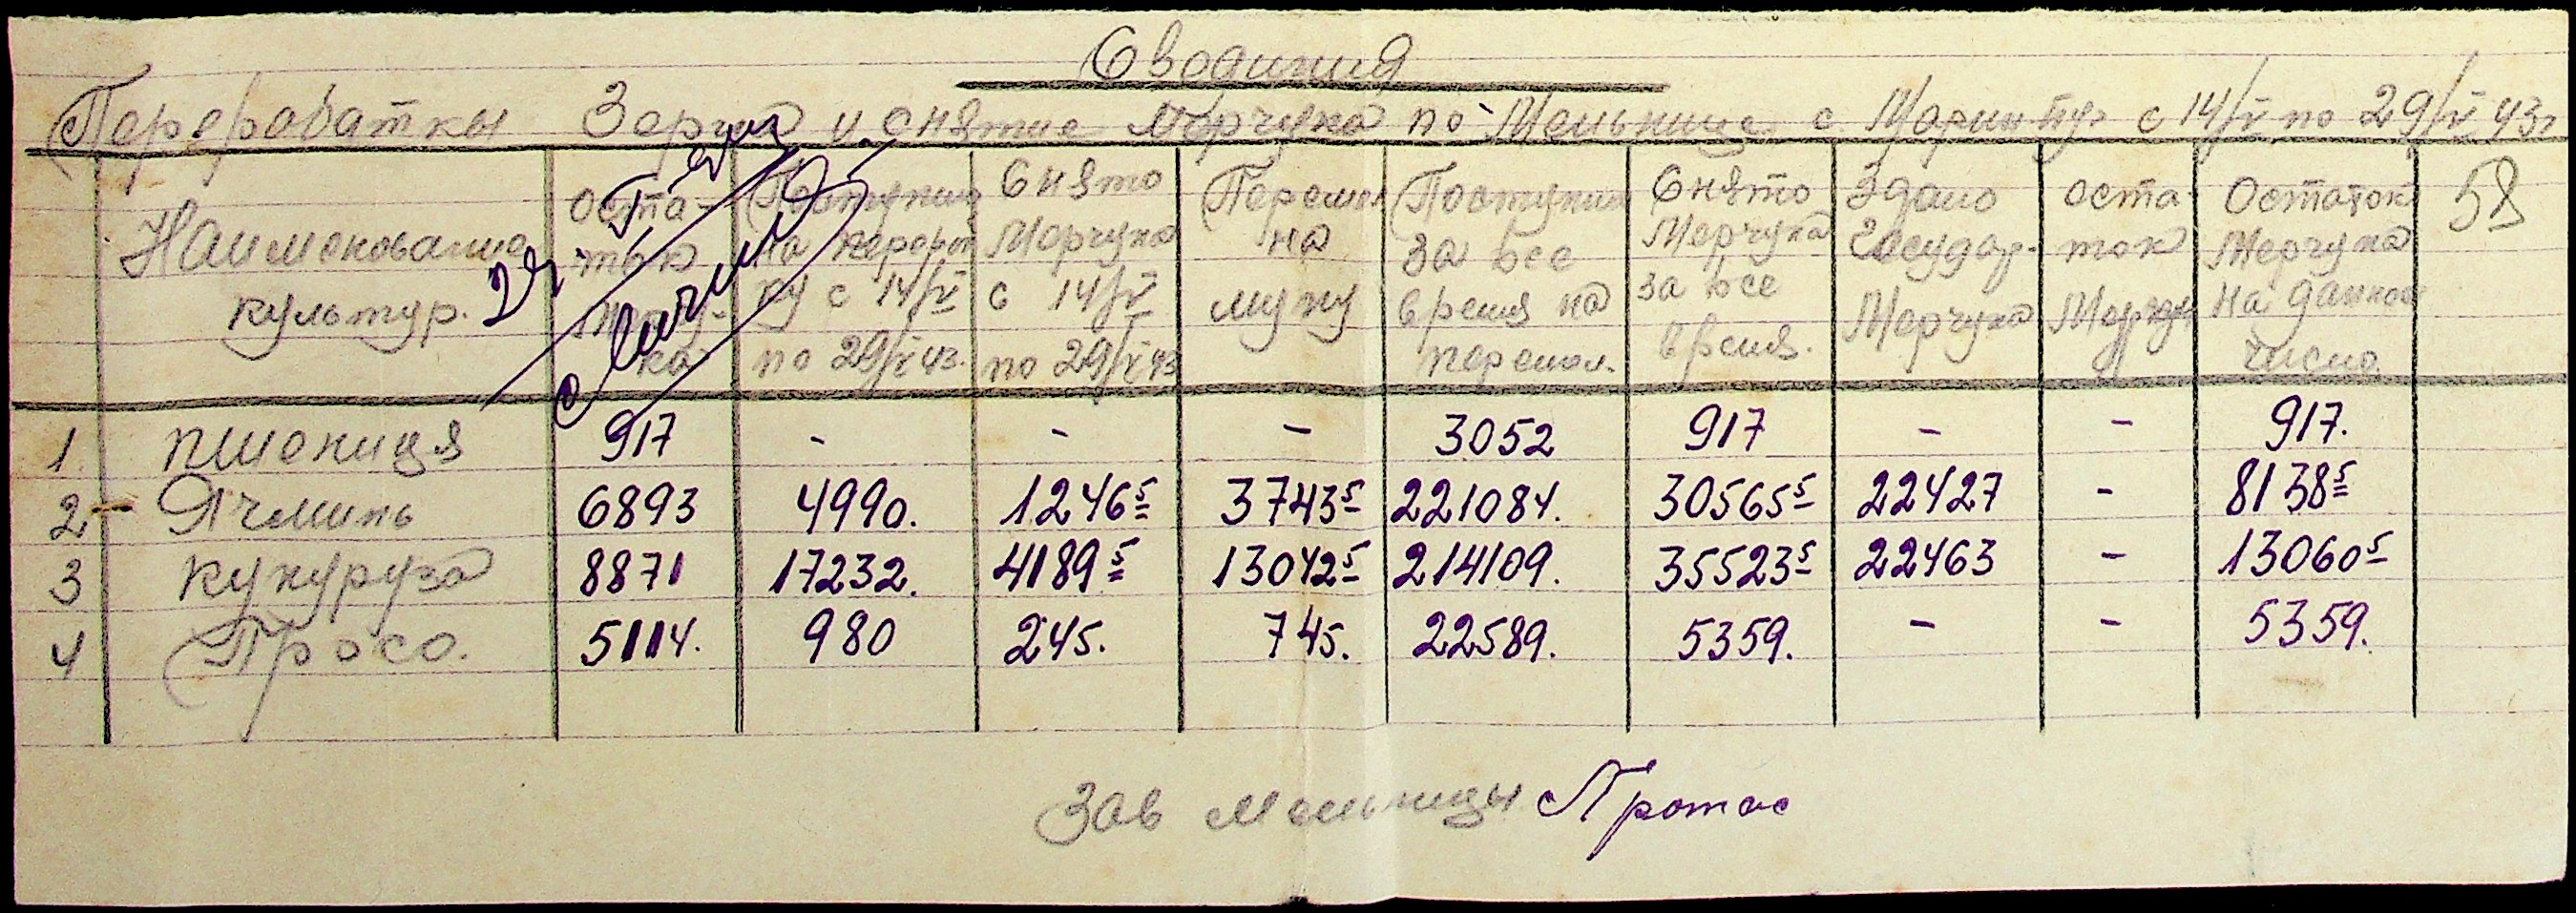 Сводиния
Переработкы Зерна и снятие Мерчука по Мельнице с Мариинпуль с 14/V по 29/V 43г
Наименование культур.
оста-
ток
Мерчу-
ка
Поступило
на перераб
ку с 14/V
по 29/V 43.
Снято
Мерчука
с 14/V
по 29/V 43
Перемол
на
муку
Поступило
за все
время на
перемол.
Снято
Мерчука
за все
время.
Здано
Государ.
Мерчука
оста
ток
Остаток
Мерчука
на данное
число
58
1. пшеница 917 - - - 3052 917 - - 917.
2 Ячминь 6893 4990. 1246⁵ 3743⁵ 221084. 30565⁵ 22427 - 8138⁵
3 кукуруза 8871 17232. 4189⁵ 13042⁵ 214109. 35523⁵ 22463 - 13060⁵
4 Просо. 5114. 980 245. 745. 22589. 5359. - - 5359.
Зав мельницы Протас